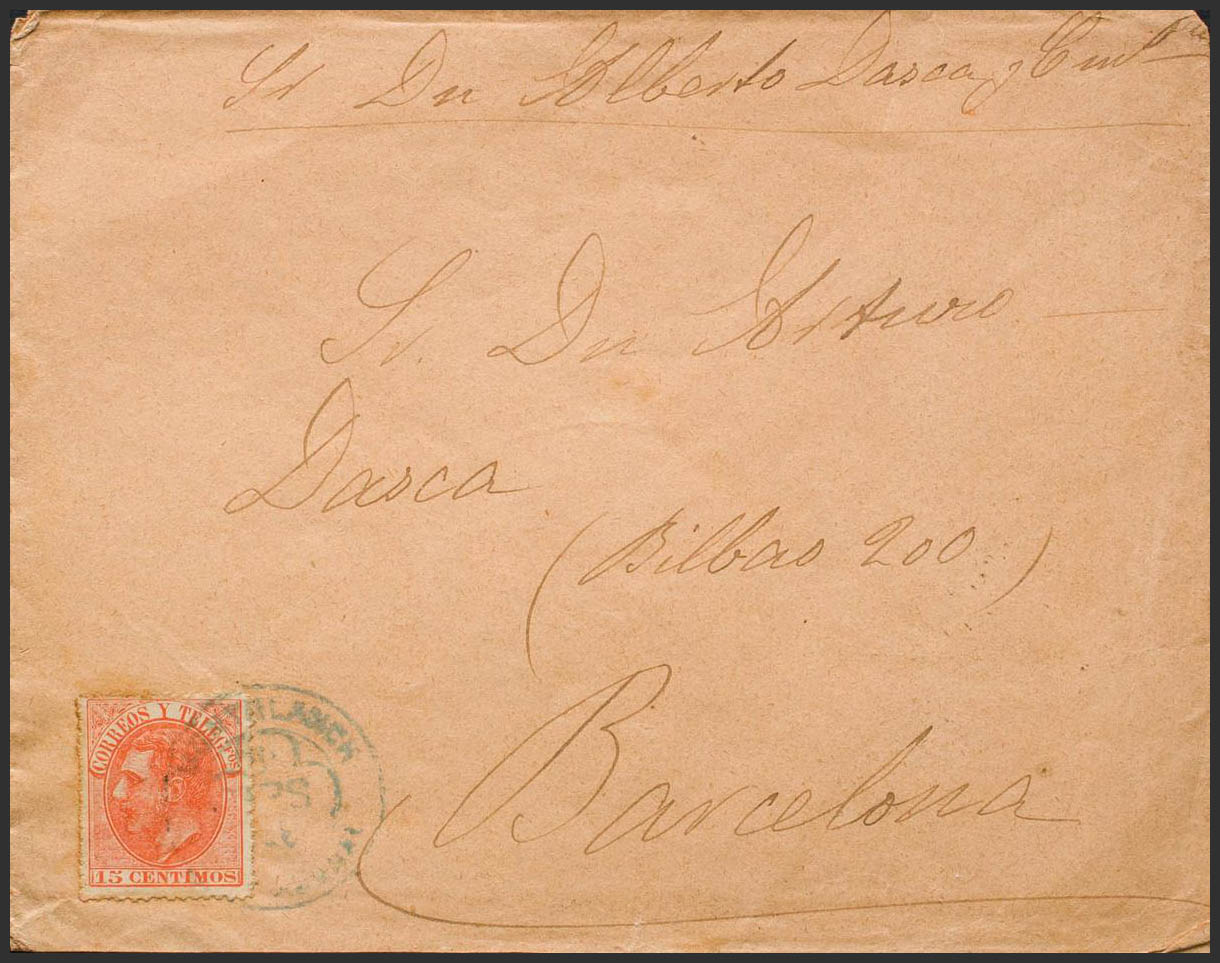 Sr Dn Alberto Dasca y
Sr. Dn Arturo
Dasca
(Bilbao 200)
Barcelona
CORREOS Y TELEGFOS
15 CENTIMOS